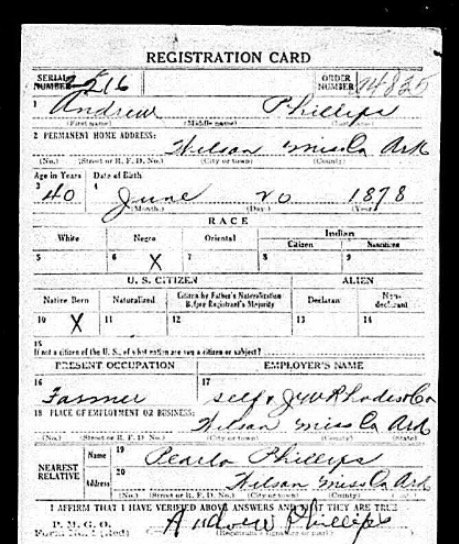 REGISTRATION CARD
SERIAL NUMBER 2216 ORDER NUMBER
1 Andrew Phillips
(First name) (Middle name) (Last name)
2 PERMANENT HOME ADDRESS:
Wilson Miss Co Ark
(No.) (Street or R. F. D. No.) (City or town) (County)
Age in Years Date of Birth
3 40 4 June 20 1878
(Month.) (Day.) (Year.)
RACE
White Negro Oriental Indian
Citizen Noncitizen
5 6 X 7 8 9
U. S. CITIZEN ALIEN
Native Born Naturalized Citizen by Father's Naturalization Before Registrant's Majority Declarant Non-declarant
10 X 11 12 13 14
15
If not a citizen of the U. S., of what nation are you a citizen or subject?
PRESENT OCCUPATION EMPLOYER'S NAME
16 Farmer 17 self & J W Rhodes Co
18 PLACE OF EMPLOYMENT OR BUSINESS:
Wilson Miss Co Ark
(No.) (Street or R. F. D. No.) (City or town) (County) (State)
NEAREST RELATIVE Name 19 Pearla Phillips
Address 20 Wilson Miss Co Ark
(No.) (Street or R. F. D. No.) (City or town) (County)
I AFFIRM THAT I HAVE VERIFIED ABOVE ANSWERS AND THAT THEY ARE TRUE
P. M. G. O.
Form No. 1 (Red) Andrew Phillips
(Registrant's signature or mark)